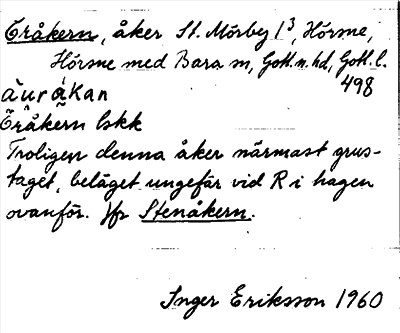 Öråkern, åker St. Mörby 1³, Hörsne,
Hörsne med Bara sn, Gotl. n. hd, Gotl. l.
498
àuråkan
Öråkern lskk
Troligen denna åker närmast grus-
taget, beläget ungefär vid R i hagen
ovanför. Jfr Stenåkern.
Inger Eriksson 1960